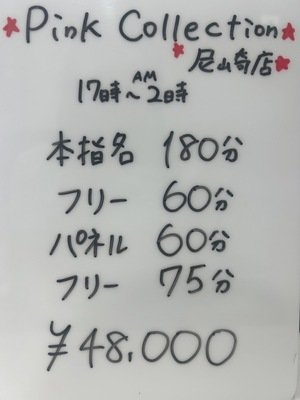 Pink Collection
尼崎店
17時〜AM2時
本指名 180分
フリー 60分
パネル 60分
フリー 75分
¥48,000